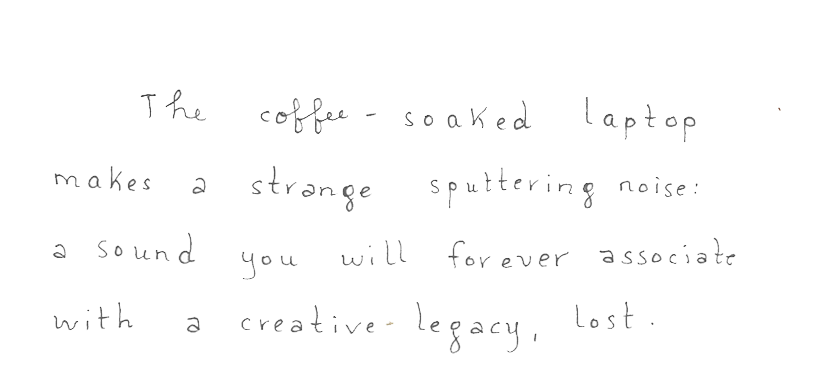 The coffee-soaked laptop
makes a strange sputtering noise:
a sound you will forever associate
with a creative-legacy, lost.